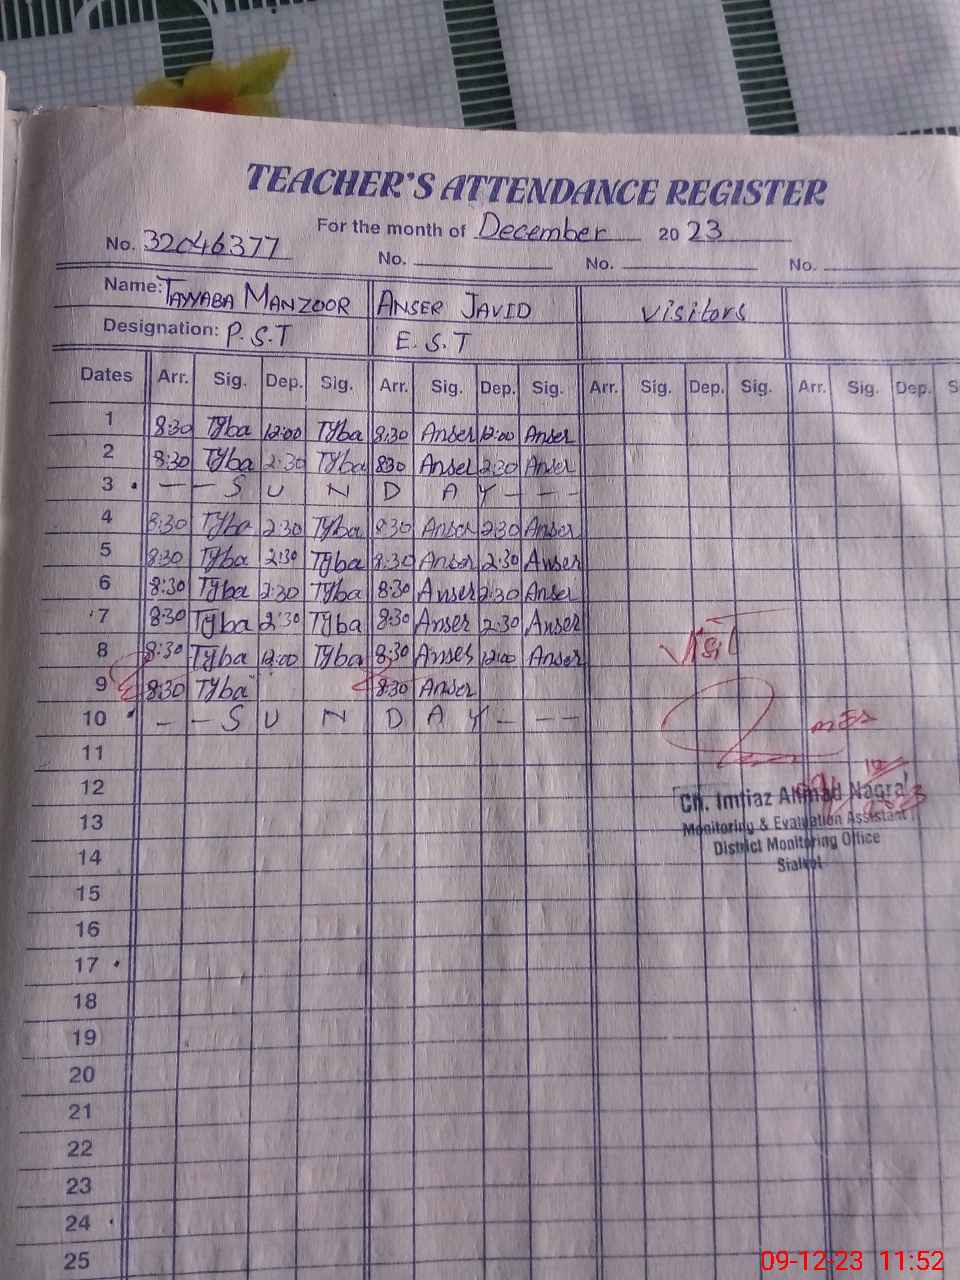 TEACHER'S ATTENDANCE REGISTER
For the month of December 20 23
No. 32046377 No. No. No.
Name: TAYYABA MANZOOR ANSER JAVID visitors
Designation: P.S.T E.S.T
Dates Arr. Sig. Dep. Sig. Arr. Sig. Dep. Sig. Arr. Sig. Dep. Sig. Arr. Sig. Dep. S
1 8:30 Tyba 12:00 Tyba 8:30 Anser 12:00 Anser
2 8:30 Tyba 2:30 Tyba 830 Anser 2:30 Anser
3 - - S U N D A Y - - -
4 8:30 Tyba 2:30 Tyba 8:30 Anser 2:30 Anser
5 8:30 Tyba 2:30 Tyba 8:30 Anser 2:30 Anser
6 8:30 Tyba 2:30 Tyba 8:30 Anser 2:30 Anser
7 8:30 Tyba 2:30 Tyba 8:30 Anser 2:30 Anser
8 8:30 Tyba 12:00 Tyba 8:30 Anser 12:00 Anser
Visit
9 8:30 Tyba 8:30 Anser
10 - - S U N D A Y - - -
11
12
Ch. Imtiaz Ahmad Nagra
13
Monitoring & Evaluation Assistant
District Monitoring Office
14
Sialkot
15
16
17
18
19
20
21
22
23
24
25
09-12-23 11:52